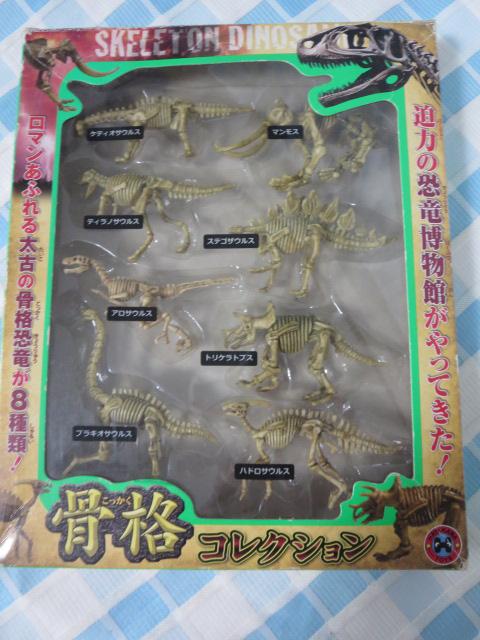 SKELETON DINOSA
迫力の恐竜博物館がやってきた!
ロマンあふれる太古の骨格恐竜が8種類!
ケティオサウルス
マンモス
ティラノサウルス
ステゴザウルス
アロサウルス
トリケラトプス
ブラキオサウルス
ハドロサウルス
こっかく
骨格
コレクション